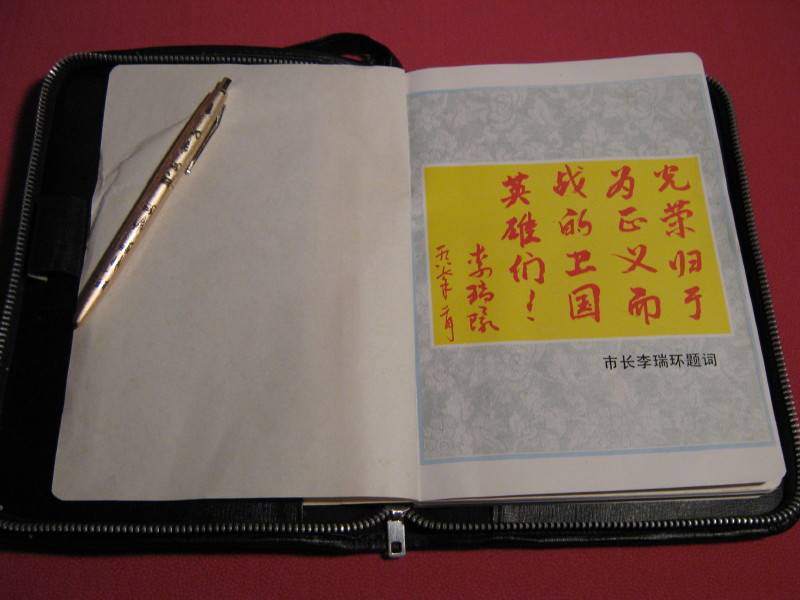 光荣归于
为正义而
战的卫国
英雄们！
李瑞环
一九八七年二月
市长李瑞环题词